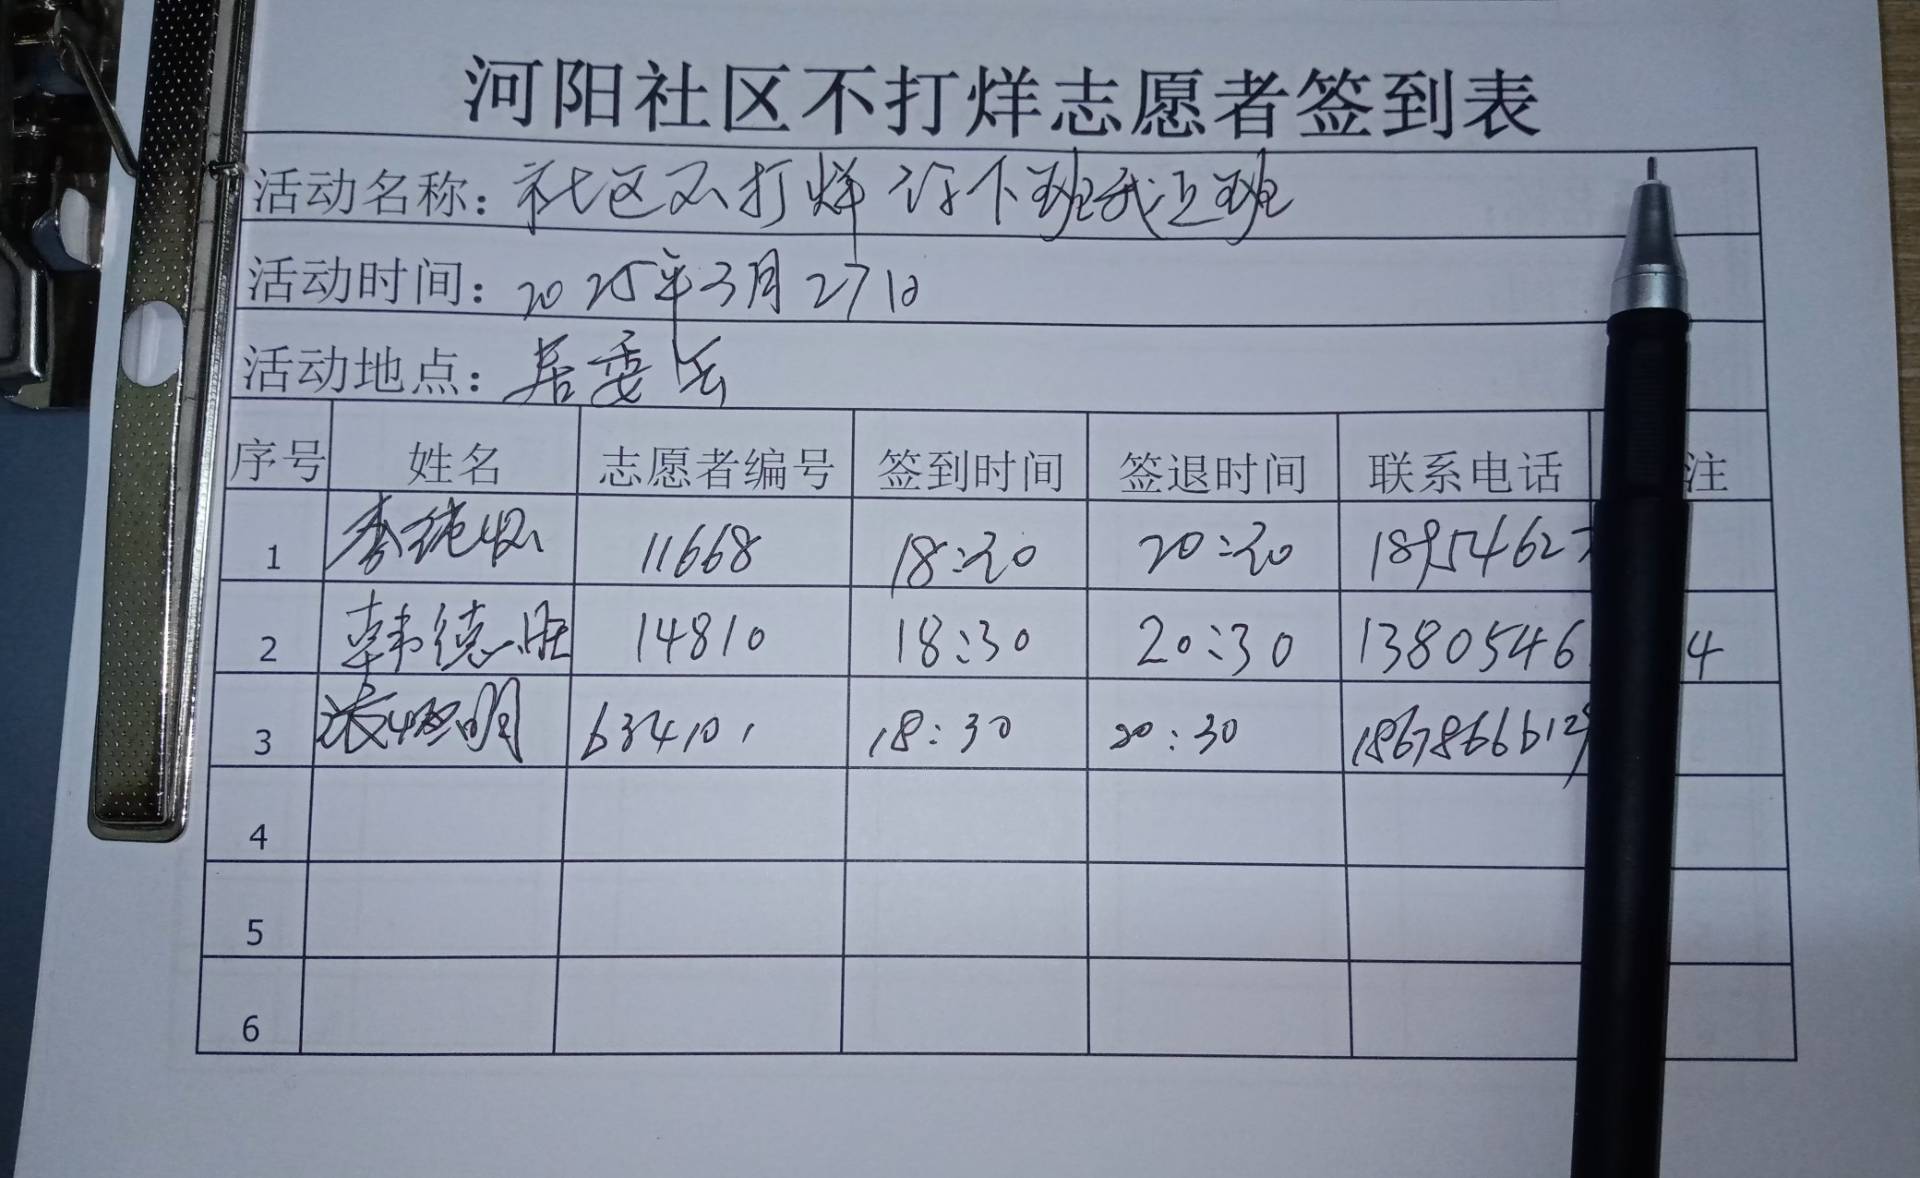 河阳社区不打烊志愿者签到表
活动名称：社区不打烊 你下班我上班
活动时间：2025年3月27日
活动地点：居委会
序号 姓名 志愿者编号 签到时间 签退时间 联系电话 注
1 李 11668 18:20 20:20 18954627
2 韩德胜 14810 18:30 20:30 1380546 4
3 明 634101 18:30 20:30 186786612
4
5
6